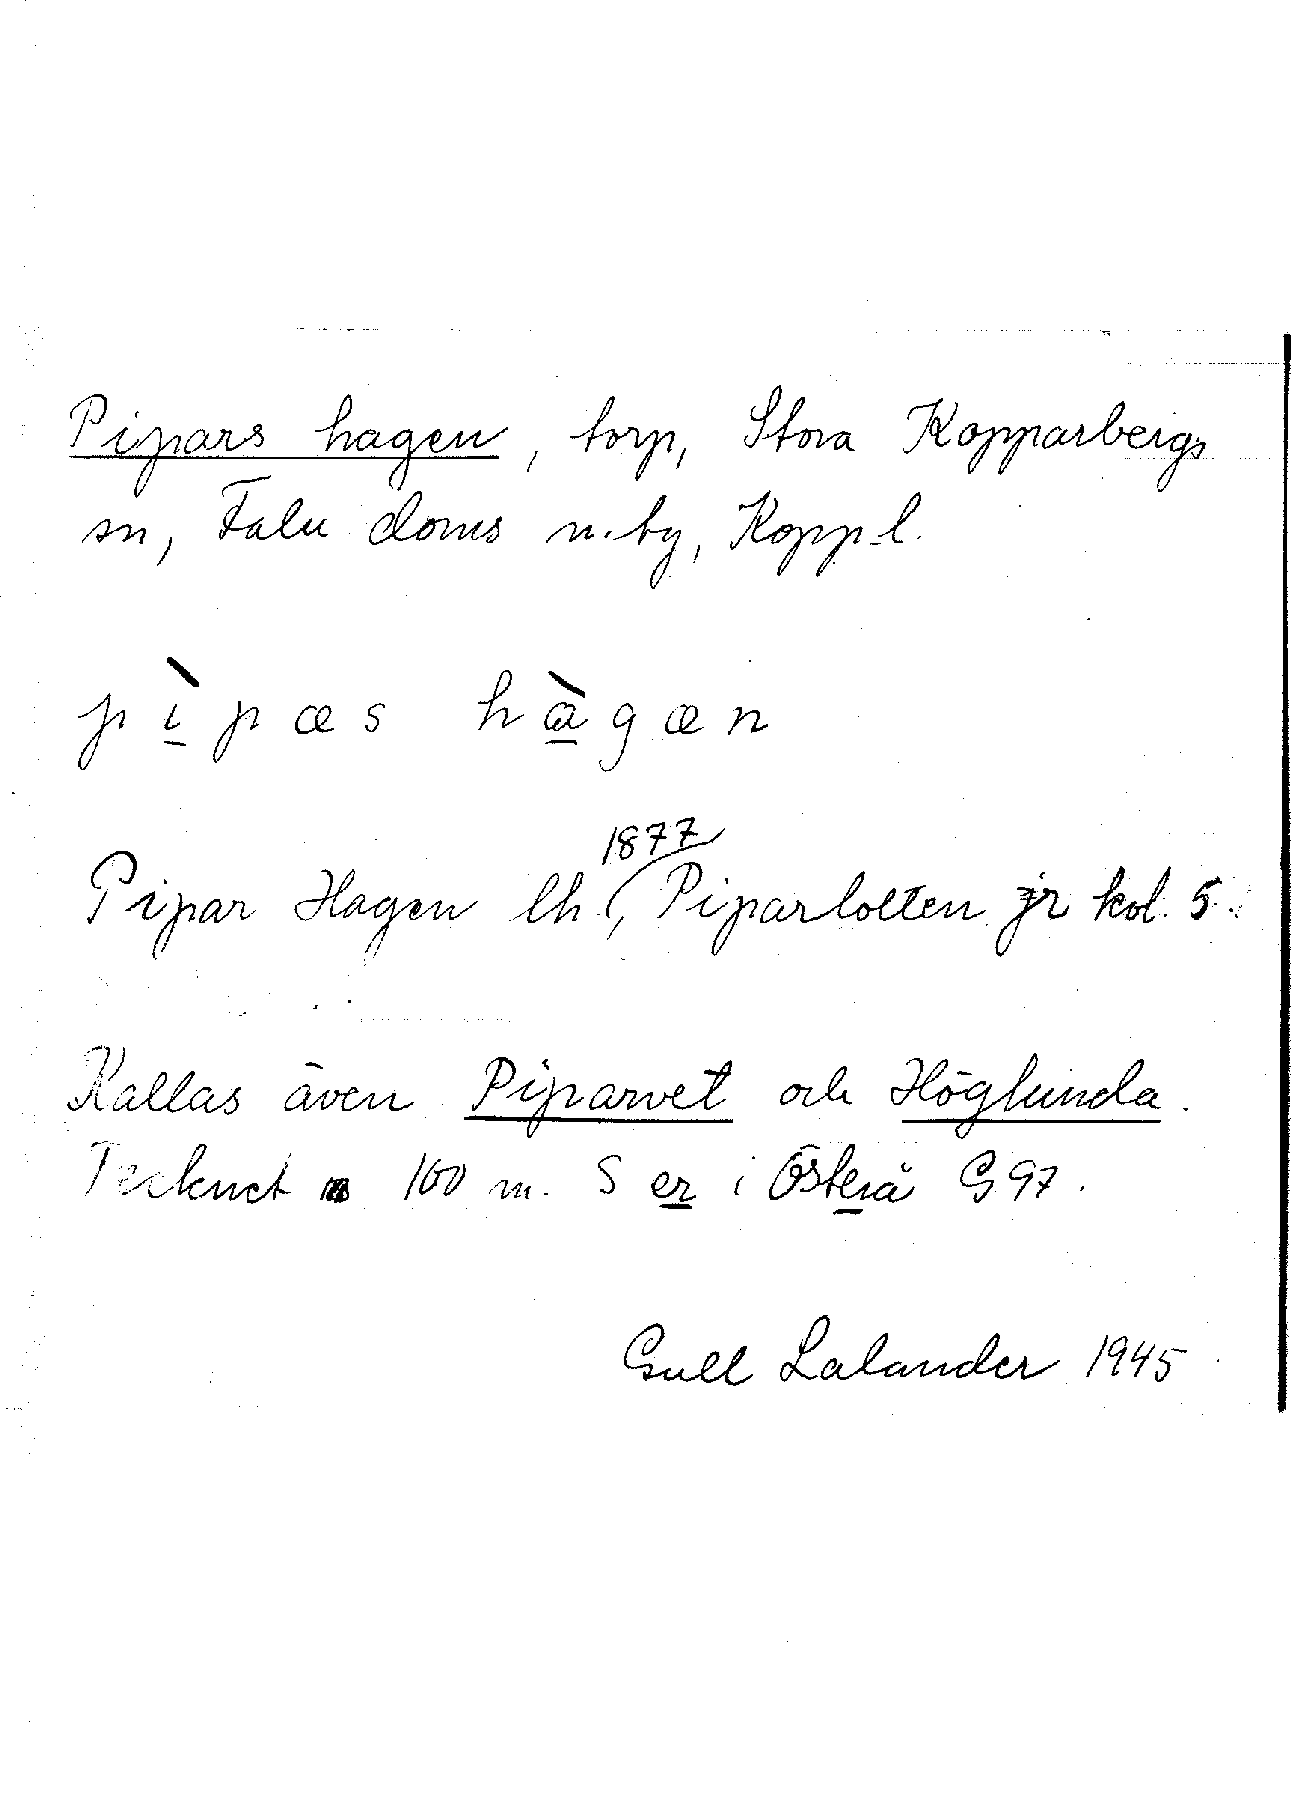 Pipars hagen, torp, Stora Kopparbergs
sn, Falu doms n. by, Kopp. l.
pìpæs hàgæn
1877
Pipar Hagen lh (, Piparlotten jr kol. 5.
Kallas även Piparvet och Höglunda.
Tecknet 100 m. S er i Österå G 97.
Gull Lalander 1945